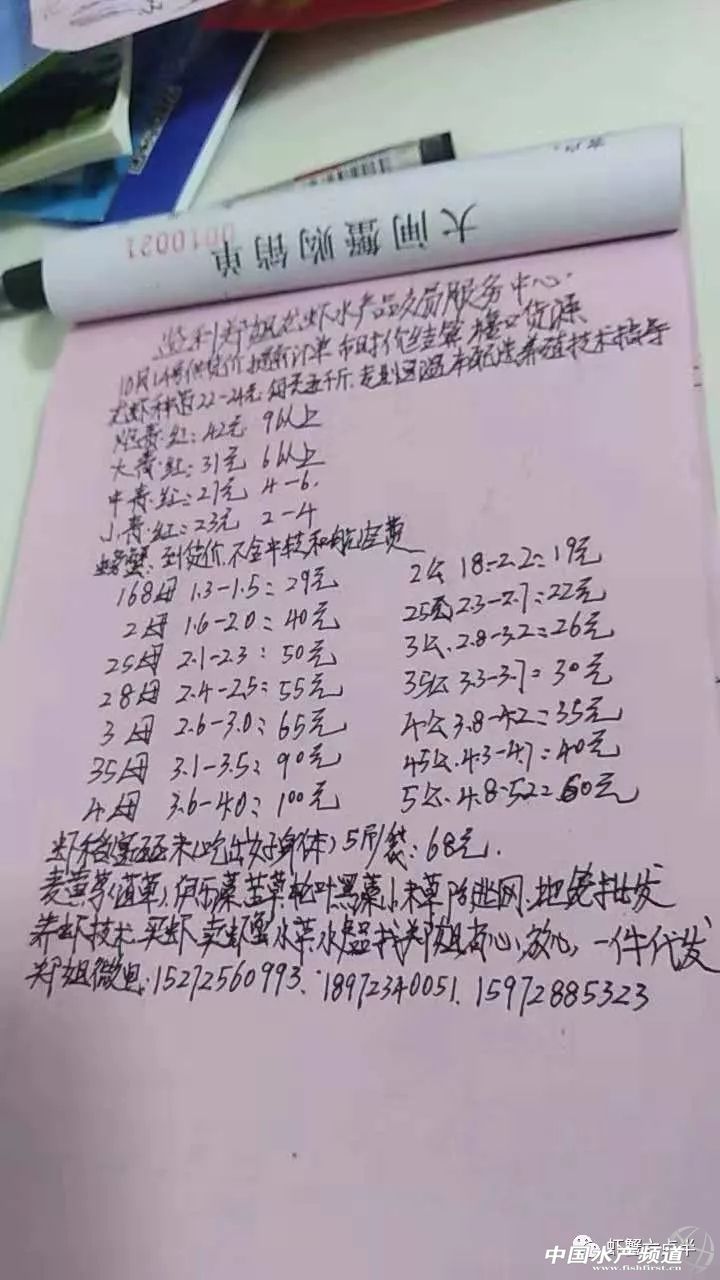 大闸蟹购销单
0010021
监利郑姐龙虾水产品交易服务中心
10月14号供货价 提前订单 市时价结算 塘口货源
龙虾种苗22-24元 每天 千斤. 恒温车配送养殖技术指导
炮青.红:42元 9以上
大青.红:31元 6以上
中青.红:27元 4-6.
小青.红:23元 2-4
螃蟹:到货价.不含 和
168母 1.3-1.5:29元
2母 1.6-2.0:40元
25母 2.1-2.3:50元
28母 2.4-2.5:55元
3母 2.6-3.0:65元
35母 3.1-3.5:90元
4母 3.6-4.0:100元
2公 18-2.2:19元
25公.2.3-2.7:22元
3公.2.8-3.2:26元
35公 3.3-3.7:30元
4公 3.8-4.2:35元
45公.4.3-4.7:40元
5公.4.8-52:60元
虾稻 米(吃出好身体)5斤/袋:68元.
麦黄草(值草).伊乐藻苦草轮叶黑藻小米草防逃网.地笼批发
养虾技术 买虾 卖虾蟹 水草 找郑姐省心,放心,一件代发
郑姐微电:15272560993. 18972340051. 15972885323
虾蟹六点半
中国水产频道
www.fishfirst.cn